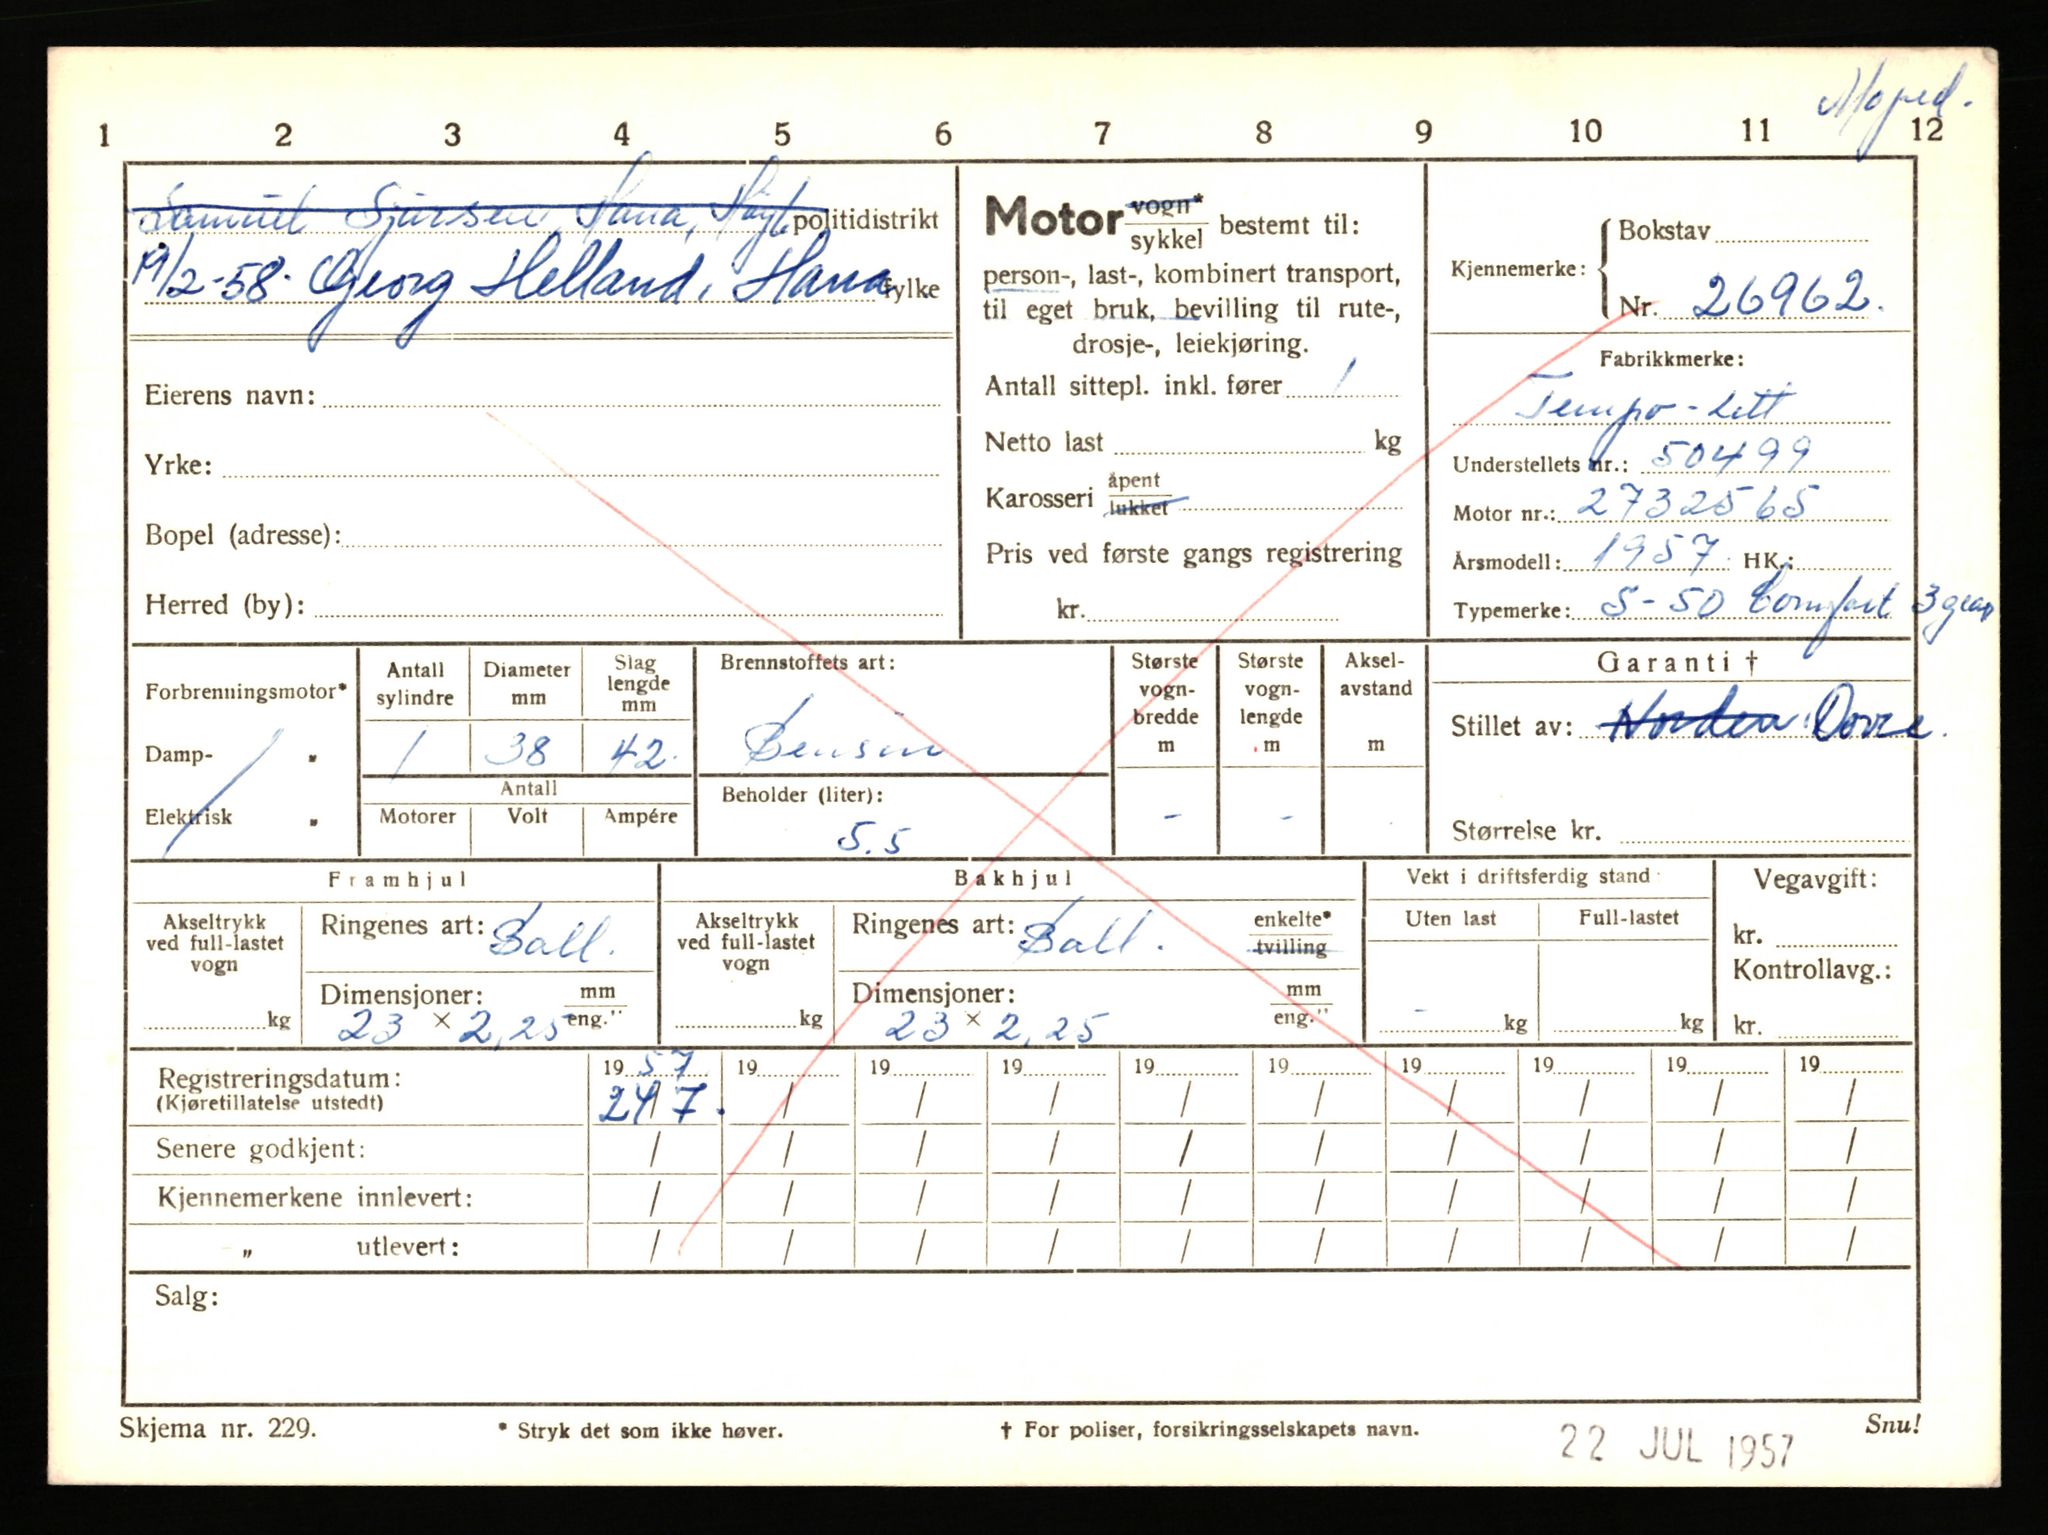 Moped.
1 2 3 4 5 6 7 8 9 10 11 12
Samuel Sjursen, Hana, Høyl. politidistrikt
19/2-58. Georg Helland, Hana fylke
Eierens navn:
Yrke:
Bopel (adresse):
Herred (by):
Motor vogn* / sykkel bestemt til:
person-, last-, kombinert transport,
til eget bruk, bevilling til rute-,
drosje-, leiekjøring.
Antall sittepl. inkl. fører 1
Netto last kg
Karosseri åpent / lukket
Pris ved første gangs registrering
kr.
Kjennemerke: { Bokstav
Nr. 26962.
Fabrikkmerke:
Tempo-Lett
Understellets nr.: 50499
Motor nr.: 2732565
Årsmodell: 1957 HK.:
Typemerke: S-50 Comfort 3 gear
Forbrenningsmotor*
Damp- "
Elektrisk "
Antall sylindre
Diameter mm
Slag lengde mm
1 38 42.
Antall
Motorer Volt Ampére
Brennstoffets art:
Bensin
Beholder (liter):
5.5
Største vogn- bredde m
Største vogn- lengde m
Aksel- avstand m
- -
Garanti †
Stillet av: Norden Dovre.
Størrelse kr.
Framhjul
Akseltrykk ved full-lastet vogn
kg
Ringenes art: Ball.
Dimensjoner: mm / eng."
23 × 2,25
Bakhjul
Akseltrykk ved full-lastet vogn
kg
Ringenes art: Ball. enkelte* / tvilling
Dimensjoner: mm / eng."
23 × 2,25
Vekt i driftsferdig stand
Uten last Full-lastet
- kg kg
Vegavgift:
kr.
Kontrollavg.:
kr.
Registreringsdatum: 1957 19 19 19 19 19 19 19 19 19
(Kjøretillatelse utstedt) 24/7. / / / / / / / / /
Senere godkjent: / / / / / / / / / /
Kjennemerkene innlevert: / / / / / / / / / /
" utlevert: / / / / / / / / / /
Salg:
Skjema nr. 229. * Stryk det som ikke høver. † For poliser, forsikringsselskapets navn. Snu!
22 JUL 1957